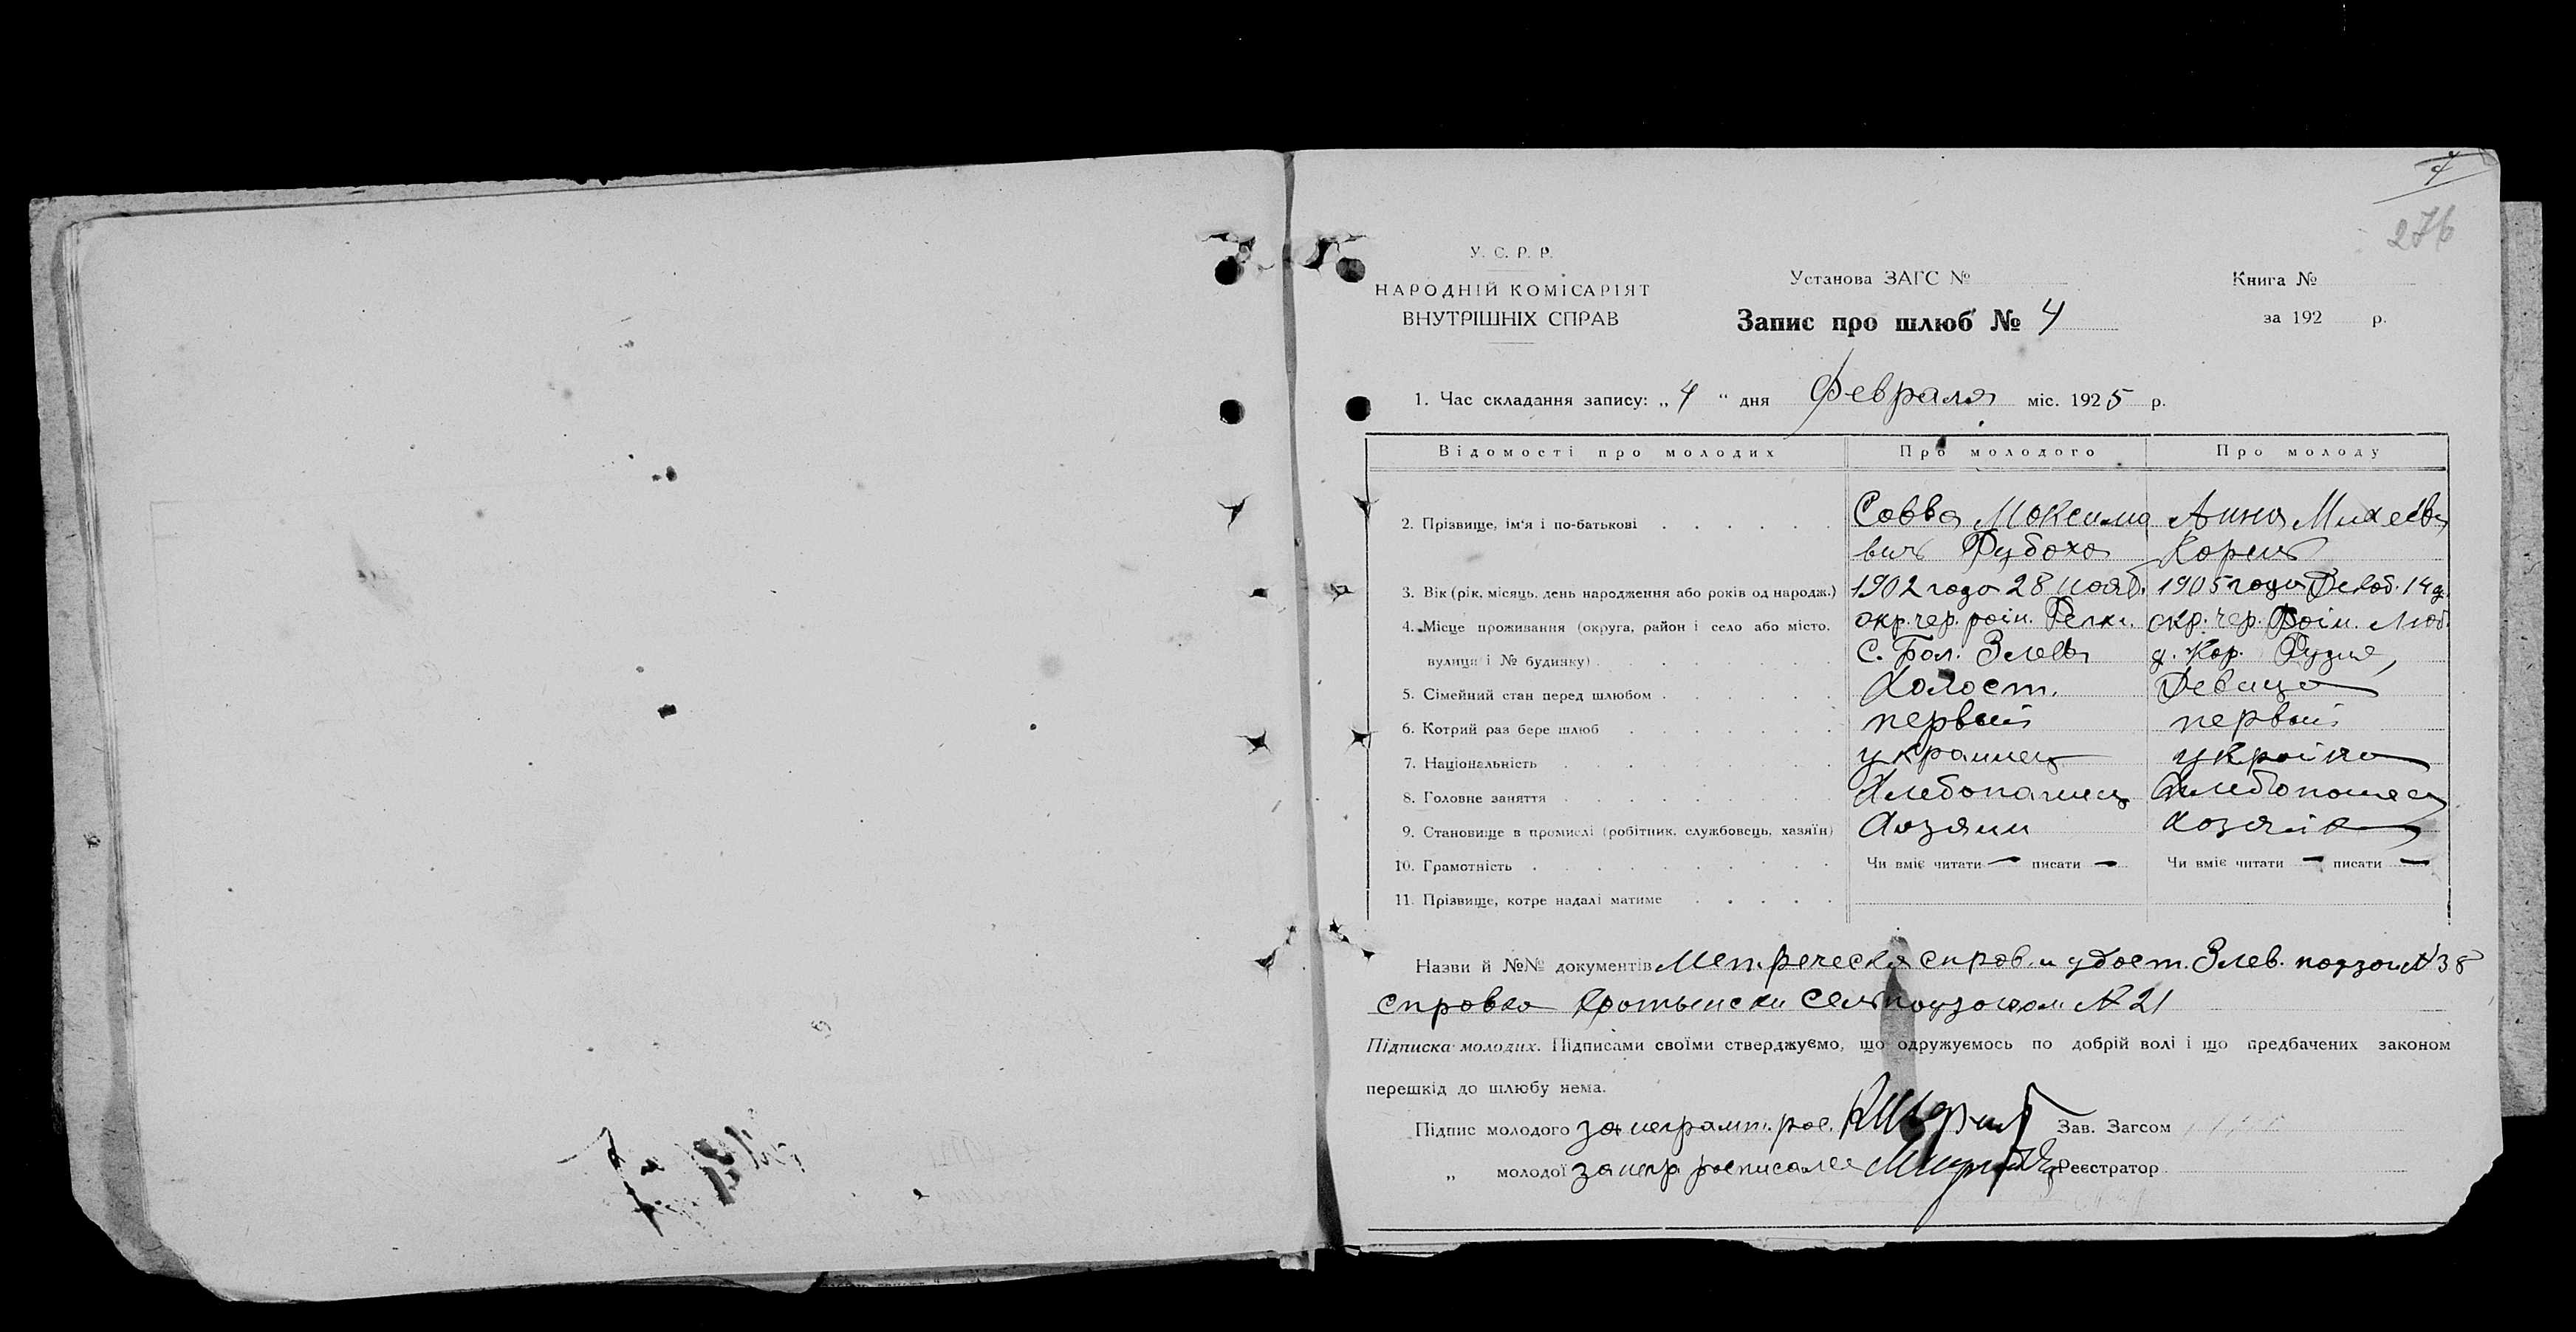 7
276
У. С. Р. Р.
НАРОДНІЙ КОМІСАРІЯТ
ВНУТРІШНІХ СПРАВ
Установа ЗАГС №
Книга №
Запис про шлюб № 4
за 192 р.
1. Час складання запису: „ 4 “ дня Февраля міс. 1925 р.
Відомості про молодих Про молодого Про молоду
2. Прізвище, ім'я і по-батькові Савва Максимо Анна Михеевн
вич
3. Вік (рік, місяць, день народження або років од народж.) 1902 года 28 нояб. 1905 года Декаб. 14 д.
4. Місце проживання (округа, район і село або місто, окр. чер. роін. Репк. окр. чер. Роін. Люб.
вулиця і № будинку) с. Бол. Злеев д. Кор. Рудня,
5. Сімейний стан перед шлюбом Холост. Девица
6. Котрий раз бере шлюб первый первый
7. Національність украинец україна
8. Головне заняття Хлебопашец Хлебопашец
9. Становище в промислі (робітник, службовець, хазяїн) Хозяин хозяйка
10. Грамотність Чи вміє читати — писати — Чи вміє читати — писати —
11. Прізвище, котре надалі матиме
Назви й №№ документів Метрическ справ. и удост. Злев. подзаг № 38
справка сельподзагсом № 21
Підписка молодих. Підписами своїми стверджуємо, що одружуємось по добрій волі і що предбачених законом
перешкід до шлюбу нема.
Підпис молодого за неграмт. рос. Зав. Загсом
„ молодої за негр росписался Реєстратор